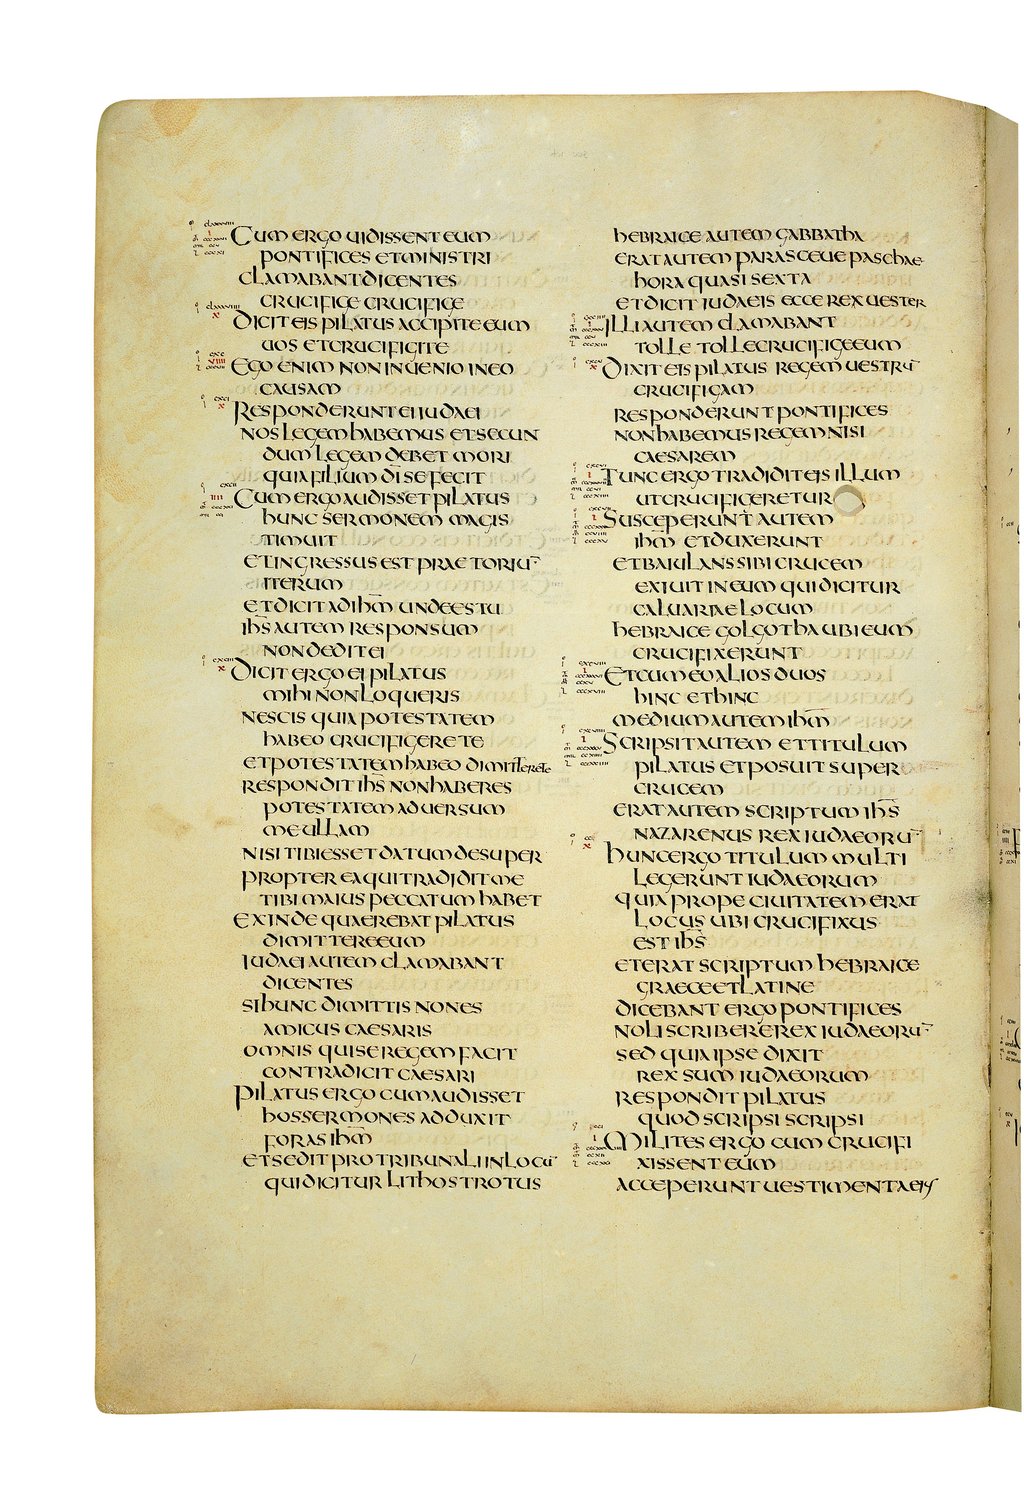 CUM ERGO UIDISSENT EUM
PONTIFICES ET MINISTRI
CLAMABANT DICENTES
CRUCIFIGE CRUCIFIGE
DICIT EIS PILATUS ACCIPITE EUM
UOS ET CRUCIFIGITE
EGO ENIM NON INUENIO IN EO
CAUSAM
RESPONDERUNT EI IUDAEI
NOS LEGEM HABEMUS ET SECUN
DUM LEGEM DEBET MORI
QUIA FILIUM DĪ SE FECIT
CUM ERGO AUDISSET PILATUS
HUNC SERMONEM MAGIS
TIMUIT
ET INGRESSUS EST PRAETORIŪ
ITERUM
ET DICIT AD IHM̄ UNDE ES TU
IHS̄ AUTEM RESPONSUM
NON DEDIT EI
DICIT ERGO EI PILATUS
MIHI NON LOQUERIS
NESCIS QUIA POTESTATEM
HABEO CRUCIFIGERE TE
ET POTESTATEM HABEO DIMITTERE TE
RESPONDIT IHS̄ NON HABERES
POTESTATEM ADUERSUM
ME ULLAM
NISI TIBI ESSET DATUM DESUPER
PROPTER EA QUI TRADIDIT ME
TIBI MAIUS PECCATUM HABET
EXINDE QUAEREBAT PILATUS
DIMITTERE EUM
IUDAEI AUTEM CLAMABANT
DICENTES
SI HUNC DIMITTIS NON ES
AMICUS CAESARIS
OMNIS QUI SE REGEM FACIT
CONTRADICIT CAESARI
PILATUS ERGO CUM AUDISSET
HOS SERMONES ADDUXIT
FORAS IHM̄
ET SEDIT PRO TRIBUNALI IN LOCŪ
QUI DICITUR LITHOSTROTUS
HEBRAICE AUTEM GABBATHA
ERAT AUTEM PARASCEUE PASCHAE
HORA QUASI SEXTA
ET DICIT IUDAEIS ECCE REX UESTER
ILLI AUTEM CLAMABANT
TOLLE TOLLE CRUCIFIGE EUM
DIXIT EIS PILATUS REGEM UESTRŪ
CRUCIFIGAM
RESPONDERUNT PONTIFICES
NON HABEMUS REGEM NISI
CAESAREM
TUNC ERGO TRADIDIT EIS ILLUM
UT CRUCIFIGERETUR
SUSCEPERUNT AUTEM
IHM̄ ET DUXERUNT
ET BAIULANS SIBI CRUCEM
EXIUIT IN EUM QUI DICITUR
CALUARIAE LOCUM
HEBRAICE GOLGOTHA UBI EUM
CRUCIFIXERUNT
ET CUM EO ALIOS DUOS
HINC ET HINC
MEDIUM AUTEM IHM̄
SCRIPSIT AUTEM ET TITULUM
PILATUS ET POSUIT SUPER
CRUCEM
ERAT AUTEM SCRIPTUM IHS̄
NAZARENUS REX IUDAEORŪ
HUNC ERGO TITULUM MULTI
LEGERUNT IUDAEORUM
QUIA PROPE CIUITATEM ERAT
LOCUS UBI CRUCIFIXUS
EST IHS̄
ET ERAT SCRIPTUM HEBRAICE
GRAECE ET LATINE
DICEBANT ERGO PONTIFICES
NOLI SCRIBERE REX IUDAEORŪ
SED QUIA IPSE DIXIT
REX SUM IUDAEORUM
RESPONDIT PILATUS
QUOD SCRIPSI SCRIPSI
MILITES ERGO CUM CRUCIFI
XISSENT EUM
ACCEPERUNT UESTIMENTA EIS